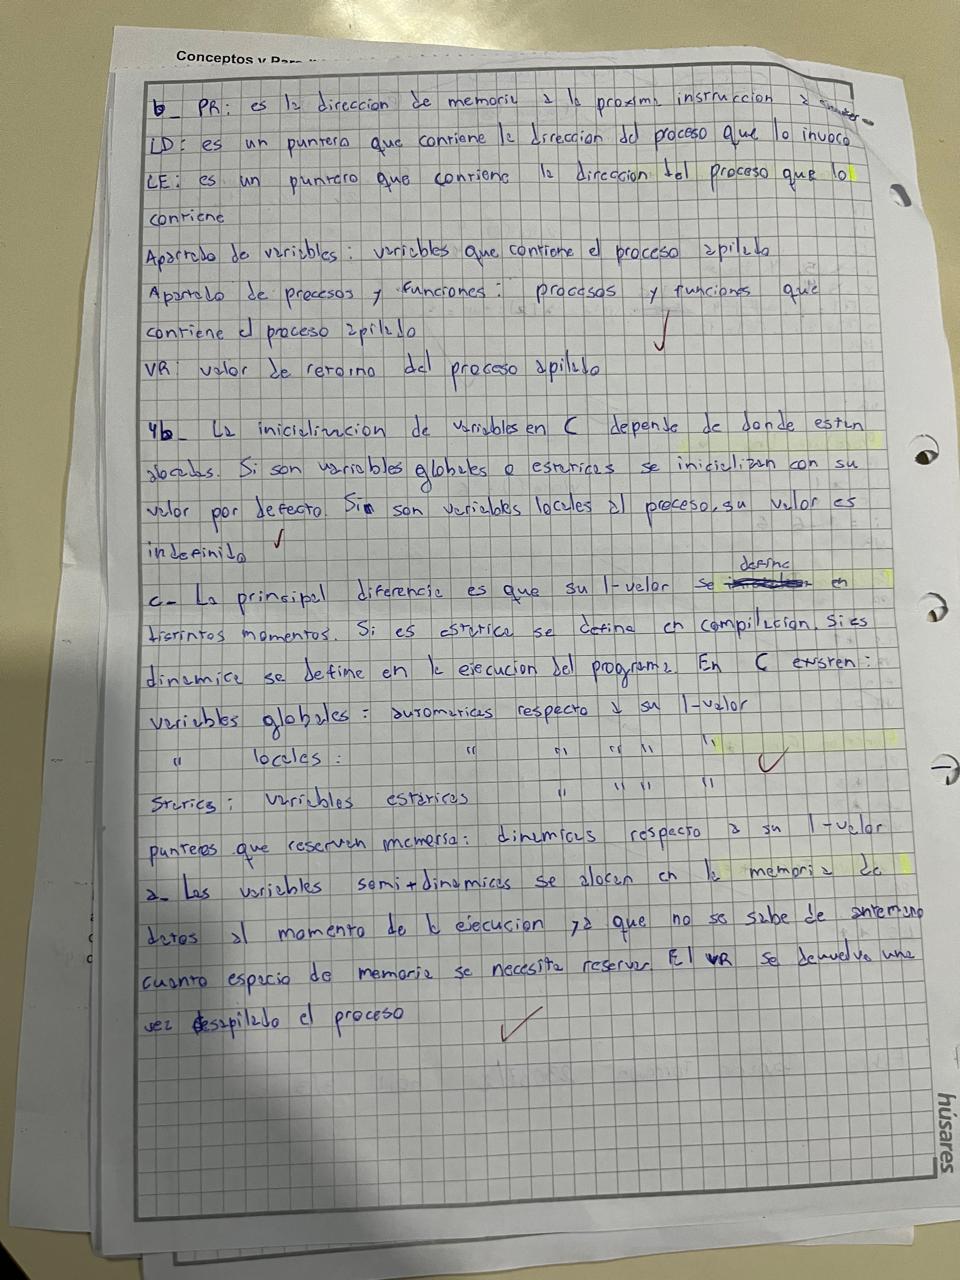 Conceptos y Para
b_ PR: es la direccion de memoria a la proxima instruccion a
LD: es un puntero que contiene la direccion del proceso que lo invoco
LE: es un puntero que contiene la direccion del proceso que lo
contiene
Apartado de variables: variables que contiene el proceso apilado
Apartado de procesos y funciones: procesos y funciones que
contiene el proceso apilado
VR: valor de retorno del proceso apilado
4b_ La inicializacion de variables en C depende de donde esten
alocadas. Si son variables globales o estaticas se inicializan con su
valor por defecto. Si son variables locales al proceso, su valor es
indefinido
define
c- La principal diferencia es que su l-valor se en
distintos momentos. Si es estatica se define en compilacion. Si es
dinamica se define en la ejecucion del programa. En C existen:
variables globales: automaticas respecto a su l-valor
" locales: " " " " "
Statics: variables estaticas " " " "
punteros que reservan memoria: dinamicas respecto a su l-valor
a_ Las variables semi+dinamicas se alocan en la memoria de
datos al momento de la ejecucion ya que no se sabe de antemano
cuanto espacio de memoria se necesita reservar. El VR se devuelve una
vez desapilado el proceso
húsares